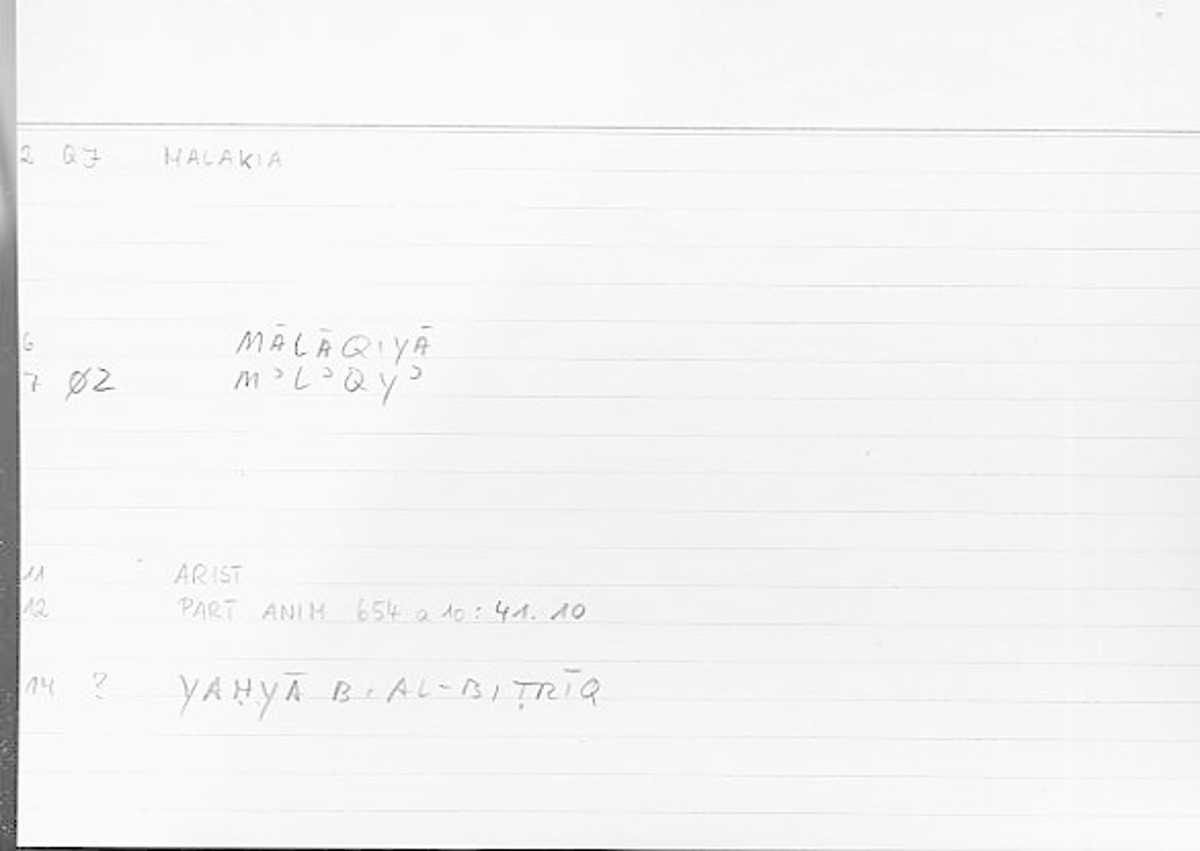 2 QJ MALAKIA
6 MĀLĀQIYĀ
7 Ø2 MʾLʾQYʾ
11 ARIST
12 PART ANIM 654 a 10: 41. 10
14 ? YAḤYĀ B. AL-BIṬRĪQ